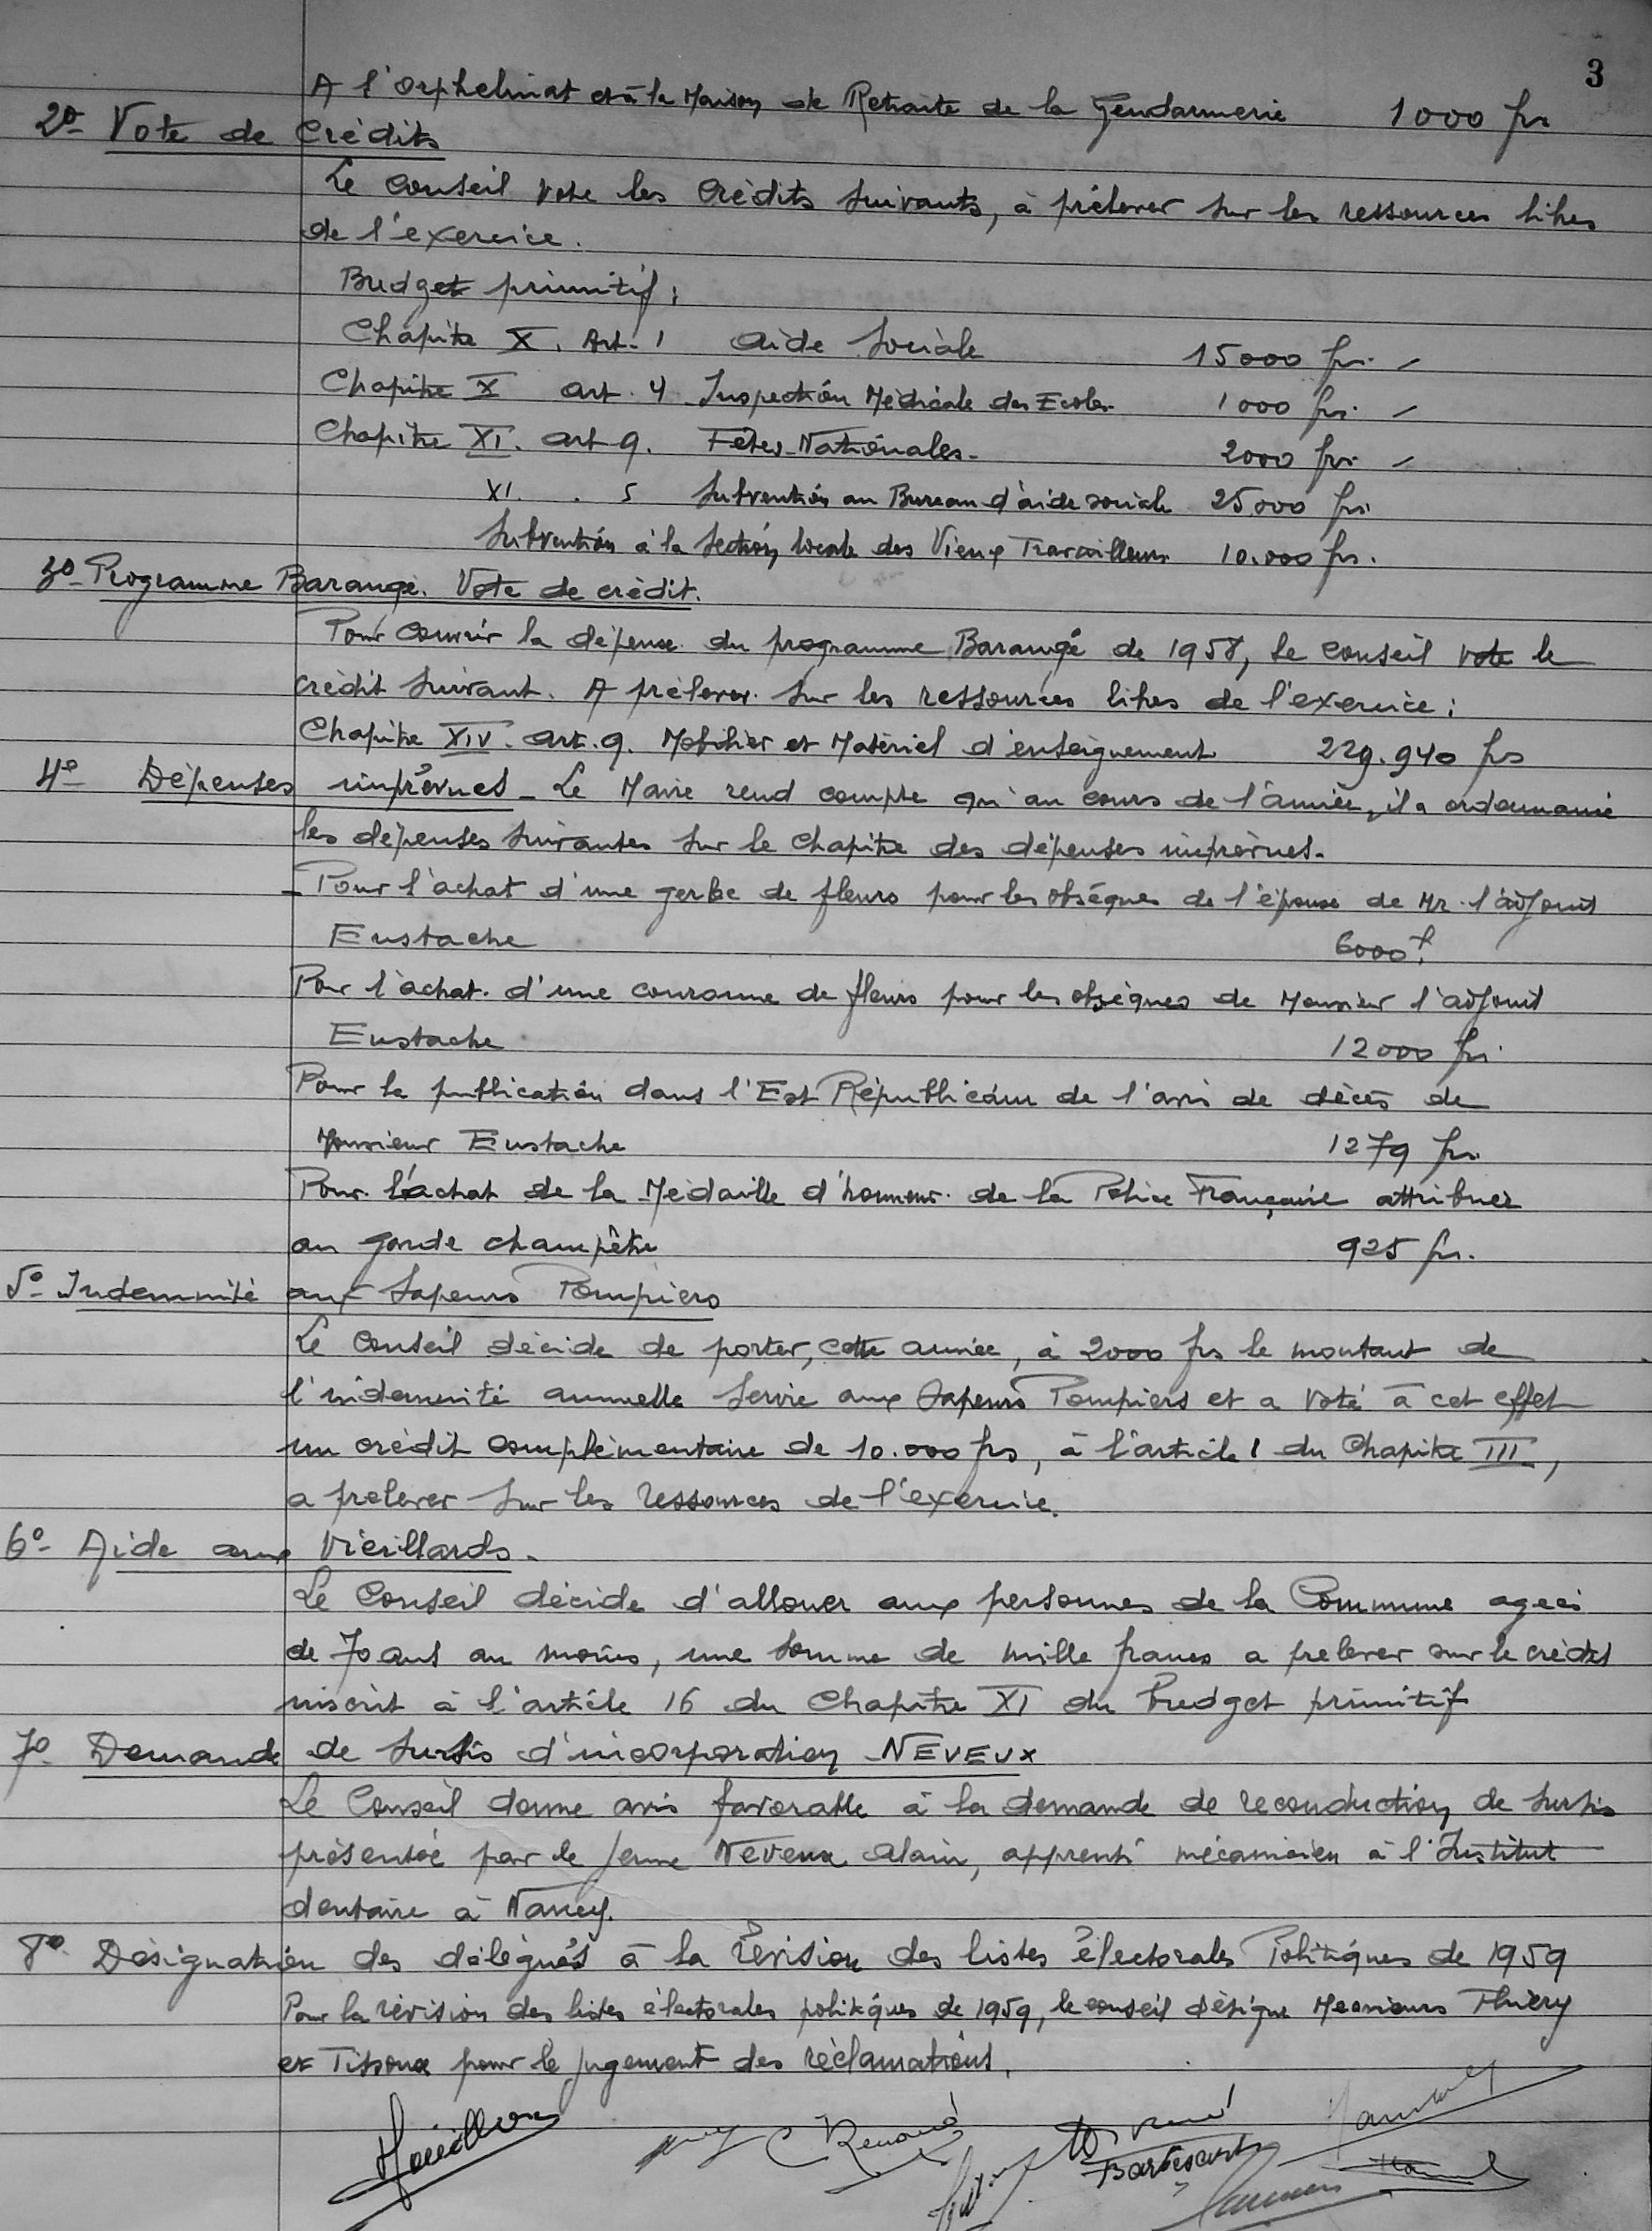 3
A l'Orphelinat et à la Maison de Retraite de la Gendarmerie 1000 frs
2º- Vote de Crédits
Le Conseil vote les Crédits suivants, à prélever sur les ressources libres
de l'exercice.
Budget primitif :
Chapitre X. Art. 1 Aide Sociale 15000 frs. -
Chapitre X art. 4 Inspection Médicale des Ecoles. 1000 frs. -
Chapitre XI. art 9. Fêtes Nationales. 2000 frs. -
XI. . 5 Subvention au Bureau d'aide sociale 25000 frs
Subvention à la Section locale des Vieux Travailleurs 10.000 frs.
3º- Programme Barangé. Vote de crédit.
Pour couvrir la dépense du programme Barangé de 1958, le Conseil vote le
crédit suivant. A prélever sur les ressources libres de l'exercice :
Chapitre XIV. art. 9. Mobilier et Matériel d'enseignement 229.940 frs
4º- Dépenses imprévues - Le Maire rend compte qu'au cours de l'année, il a ordonnancé
les dépenses suivantes sur le Chapitre des dépenses imprévues.
- Pour l'achat d'une gerbe de fleurs pour les obsèques de l'épouse de Mr. l'adjoint
Eustache 6000 f.
Pour l'achat d'une couronne de fleurs pour les obsèques de Monsieur l'adjoint
Eustache 12000 frs.
Pour la publication dans l'Est Républicain de l'avis de décès de
Monsieur Eustache 1279 frs.
Pour l'achat de la Médaille d'honneur de la Police Française attribuée
au garde champêtre 925 frs.
5º- Indemnité aux Sapeurs Pompiers
Le Conseil décide de porter, cette année, à 2000 frs le montant de
l'indemnité annuelle servie aux Sapeurs Pompiers et a voté à cet effet
un crédit complémentaire de 10.000 frs, à l'article 1 du Chapitre III,
a prelever sur les ressources de l'exercice.
6º- Aide aux Vieillards.
Le Conseil décide d'allouer aux personnes de la Commune agées
de 70 ans au moins, une somme de mille francs a prelever sur le crédit
inscrit à l'article 16 du Chapitre XI du budget primitif
7º- Demande de sursis d'incorporation NEVEUX
Le Conseil donne avis favorable à la demande de reconduction de sursis
présentée par le jeune Neveux Alain, apprenti mécanicien à l'Institut
dentaire à Nancy.
8º- Désignation des délégués à la révision des listes électorales Politiques de 1959
Pour la révision des listes électorales politiques de 1959, le conseil désigne Messieurs Thiery
et Tissoux pour le jugement des réclamations.
Renard